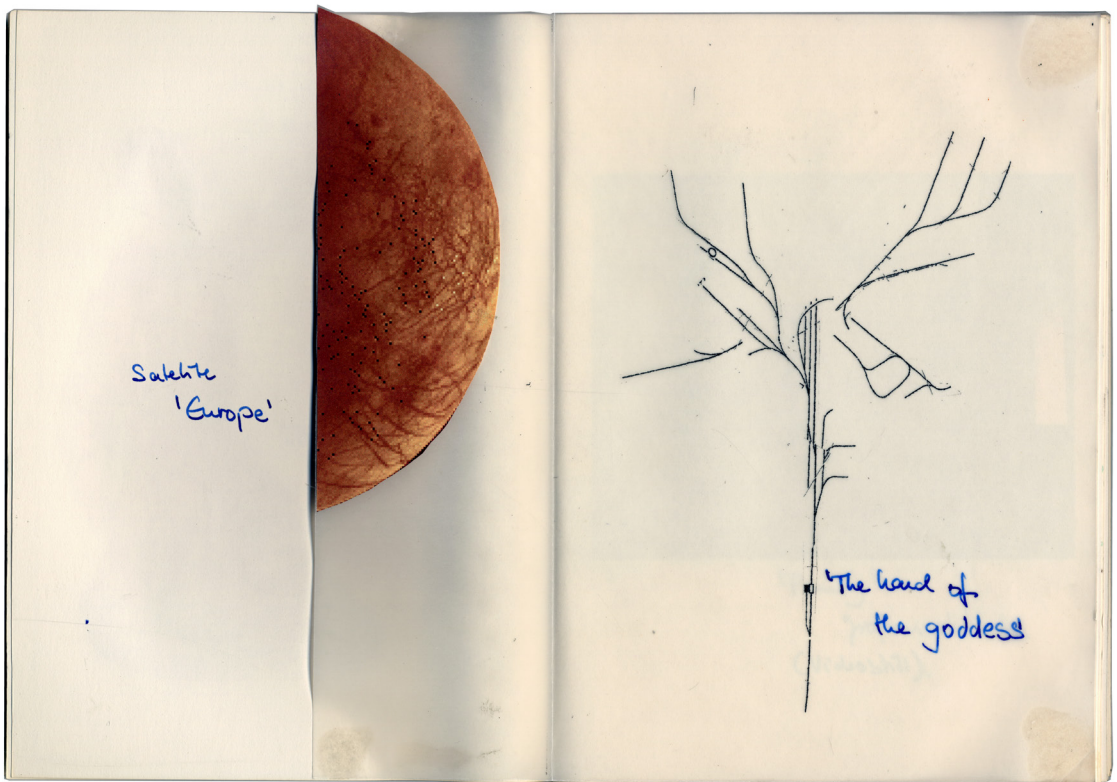 Satelite
'Europe'
'The hand of
the goddess'